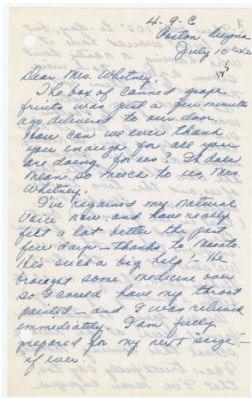 4-9-C
Poston Arizona
July 10th
Dear Mrs. Whitney,
The box of canned grape
fruits was just a few minutes
ago delivered to our door.
How can we ever thank
you enough for all you
are doing for us? It does
mean so much to us, Mrs.
Whitney.
I've regained my natural
voice now and have really
felt a lot better the past
few days — thanks to
He's such a big help! He
brought some medicine over
so I could have my throat
painted — and I was relieved
immediately. I am fully
prepared for my next "siege" —
if ever.